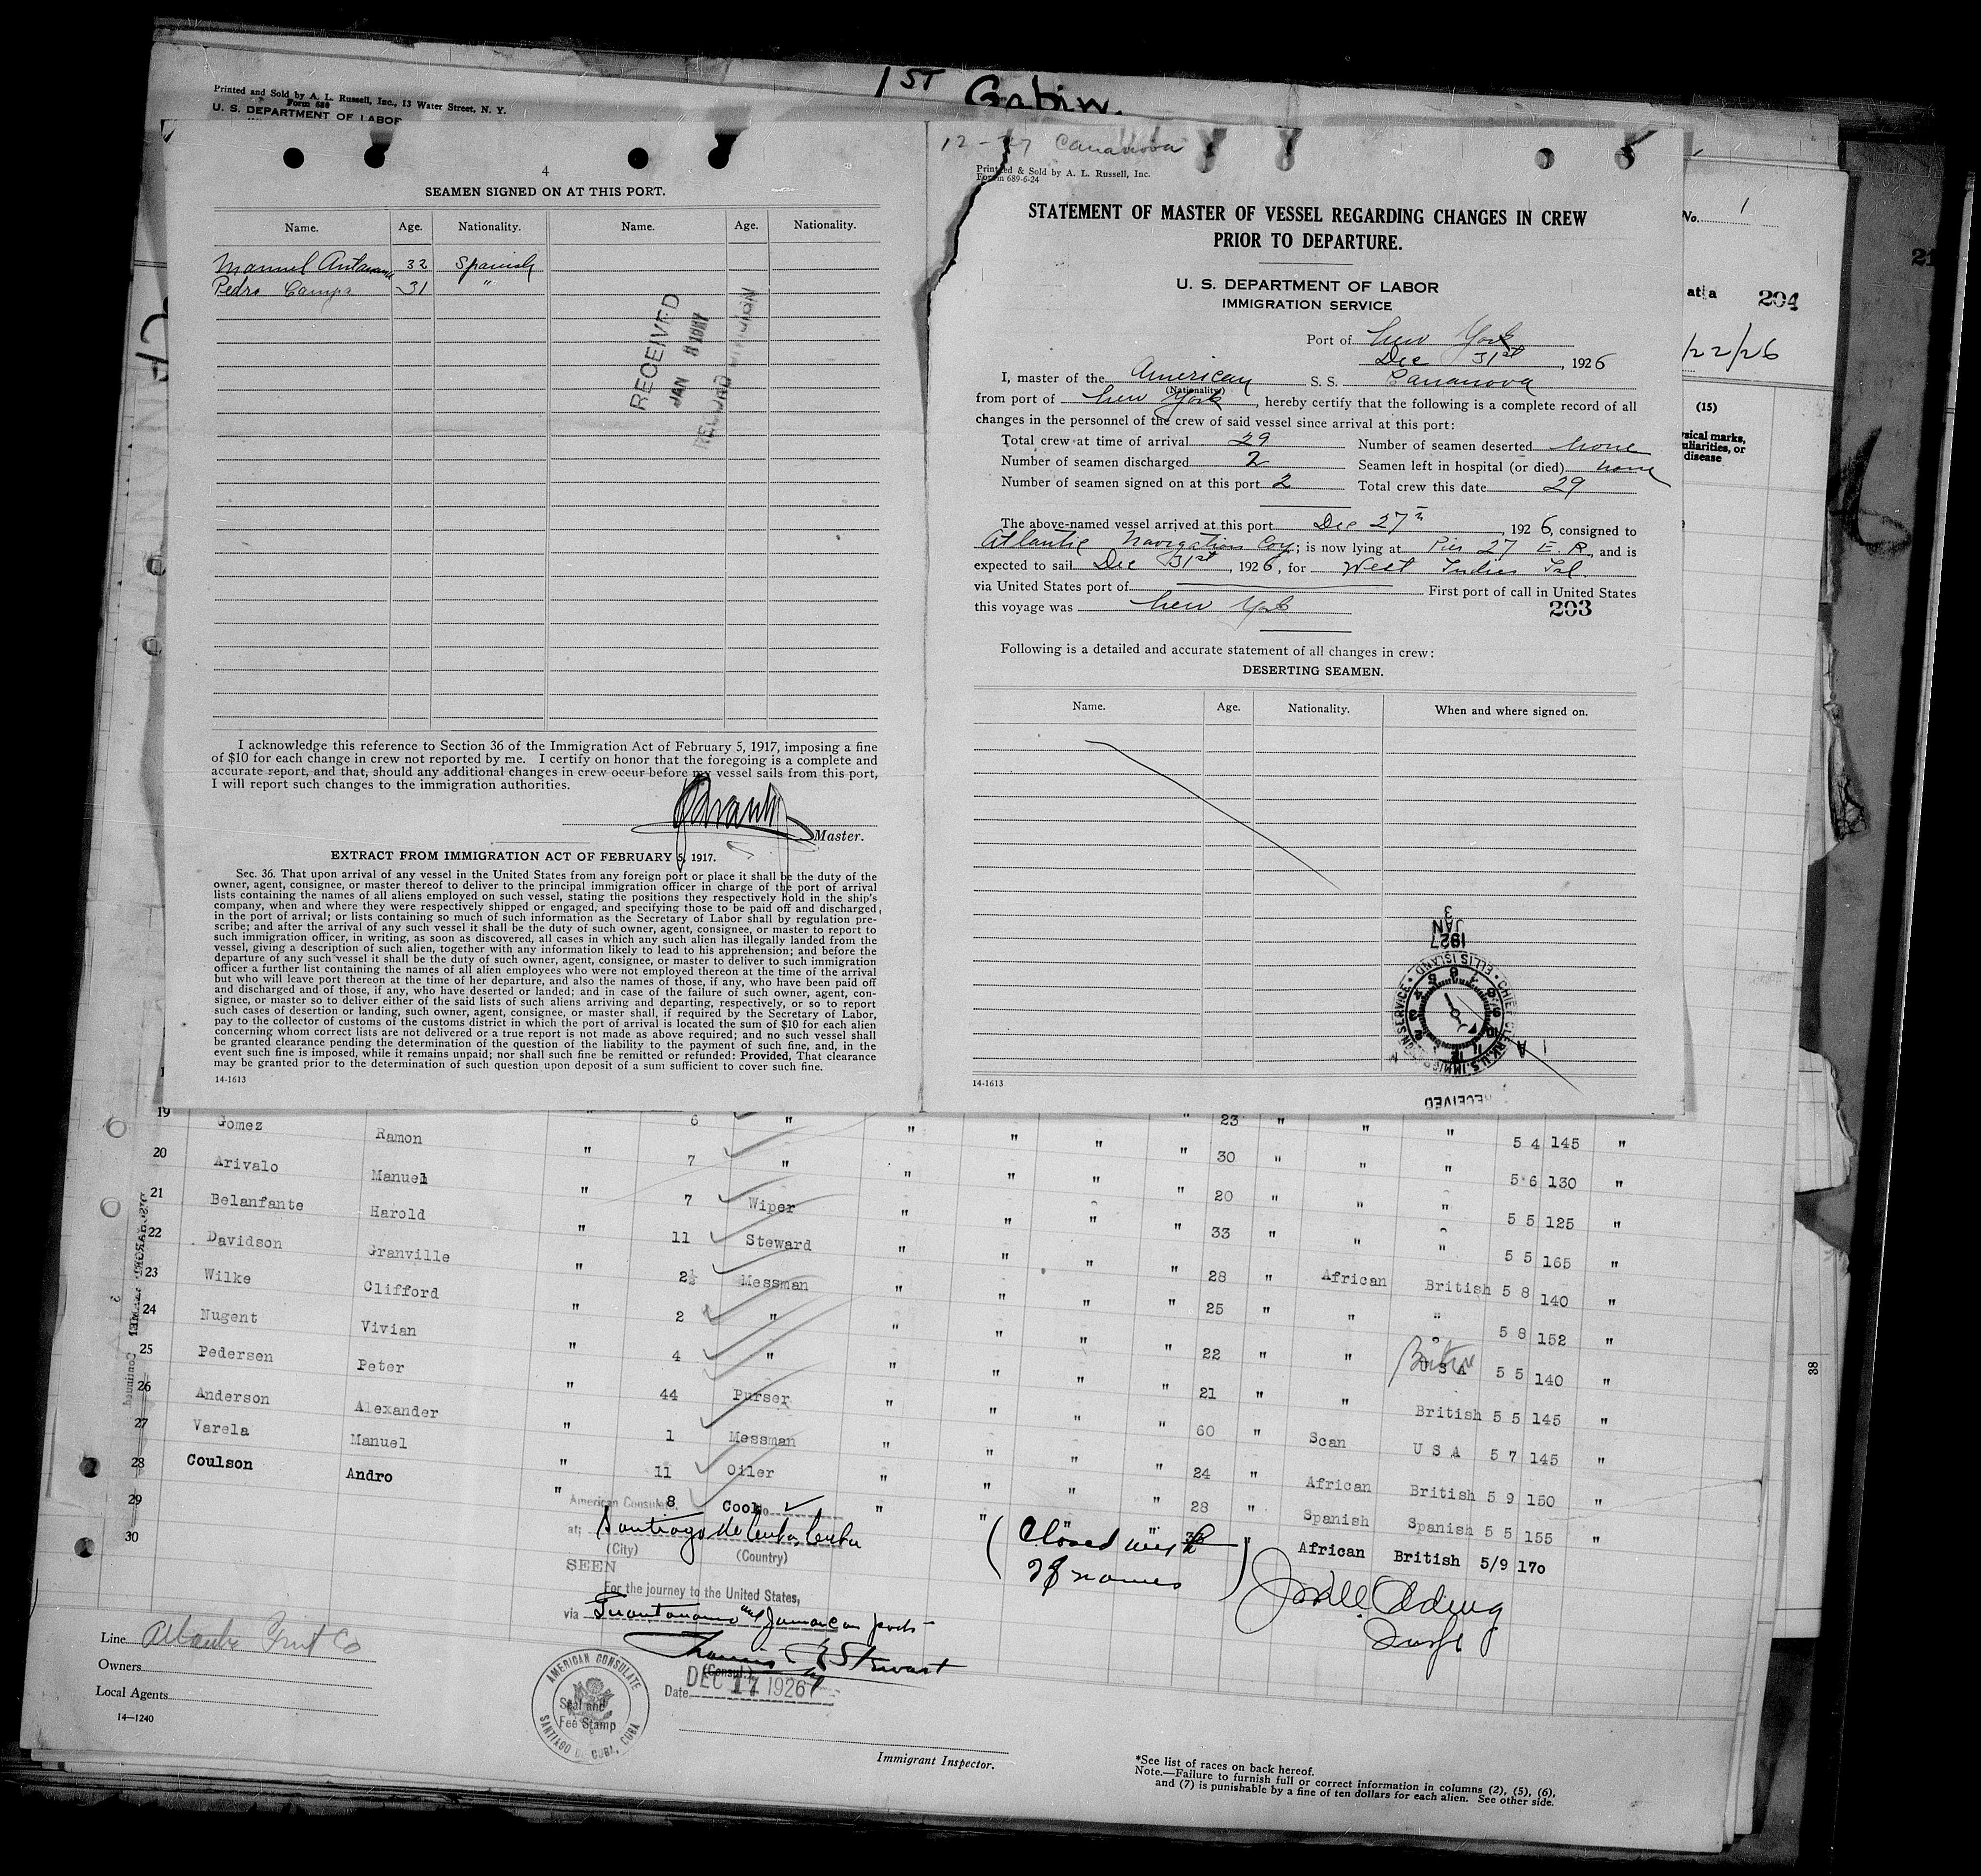 1ST Cabin.
Printed and Sold by A. L. Russell, Inc., 13 Water Street, N. Y.
Form 689
U. S. DEPARTMENT OF LABOR
4
SEAMEN SIGNED ON AT THIS PORT.
Name. Age. Nationality. Name. Age. Nationality.
Manuel 32 Spanish
Pedro Campa 31 "
RECEIVED
JAN 8 1927
I acknowledge this reference to Section 36 of the Immigration Act of February 5, 1917, imposing a fine
of $10 for each change in crew not reported by me. I certify on honor that the foregoing is a complete and
accurate report, and that, should any additional changes in crew occur before my vessel sails from this port,
I will report such changes to the immigration authorities.
Master.
EXTRACT FROM IMMIGRATION ACT OF FEBRUARY 5, 1917.
Sec. 36. That upon arrival of any vessel in the United States from any foreign port or place it shall be the duty of the
owner, agent, consignee, or master thereof to deliver to the principal immigration officer in charge of the port of arrival
lists containing the names of all aliens employed on such vessel, stating the positions they respectively hold in the ship's
company, when and where they were respectively shipped or engaged, and specifying those to be paid off and discharged,
in the port of arrival; or lists containing so much of such information as the Secretary of Labor shall by regulation pre-
scribe; and after the arrival of any such vessel it shall be the duty of such owner, agent, consignee, or master to report to
such immigration officer, in writing, as soon as discovered, all cases in which any such alien has illegally landed from the
vessel, giving a description of such alien, together with any information likely to lead to his apprehension; and before the
departure of any such vessel it shall be the duty of such owner, agent, consignee, or master to deliver to such immigration
officer a further list containing the names of all alien employees who were not employed thereon at the time of the arrival
but who will leave port thereon at the time of her departure, and also the names of those, if any, who have been paid off
and discharged and of those, if any, who have deserted or landed; and in case of the failure of such owner, agent, con-
signee, or master so to deliver either of the said lists of such aliens arriving and departing, respectively, or so to report
such cases of desertion or landing, such owner, agent, consignee, or master shall, if required by the Secretary of Labor,
pay to the collector of customs of the customs district in which the port of arrival is located the sum of $10 for each alien
concerning whom correct lists are not delivered or a true report is not made as above required; and no such vessel shall
be granted clearance pending the determination of the question of the liability to the payment of such fine, and, in the
event such fine is imposed, while it remains unpaid; nor shall such fine be remitted or refunded: Provided, That clearance
may be granted prior to the determination of such question upon deposit of a sum sufficient to cover such fine.
14-1613
12-27 Cananova
Printed & Sold by A. L. Russell, Inc.
Form 689-6-24
STATEMENT OF MASTER OF VESSEL REGARDING CHANGES IN CREW
PRIOR TO DEPARTURE.
U. S. DEPARTMENT OF LABOR
IMMIGRATION SERVICE
Port of New York
Dec 31st, 1926
I, master of the American S. S. Cananova
(Nationality)
from port of New York, hereby certify that the following is a complete record of all
changes in the personnel of the crew of said vessel since arrival at this port:
Total crew at time of arrival 29 Number of seamen deserted None
Number of seamen discharged 2 Seamen left in hospital (or died) none
Number of seamen signed on at this port 2 Total crew this date 29
The above-named vessel arrived at this port Dec 27th, 1926, consigned to
Atlantic Navigation Coy; is now lying at Pier 27 E. R, and is
expected to sail Dec 31st, 1926, for West Indies Isl.
via United States port of First port of call in United States
this voyage was New York 203
Following is a detailed and accurate statement of all changes in crew:
DESERTING SEAMEN.
Name. Age. Nationality. When and where signed on.
JAN 3
1927
CHIEF CLERK U.S. IMMIGRATION SERVICE • ELLIS ISLAND •
RECEIVED
14-1613
No. 1
at a 204
/22/26
(15)
sical marks,
uliarities, or
disease
38
19 Gomez Ramon " 6 " " " " " 23 " " " 5 4 145 "
20 Arivalo Manuel " 7 " " " " " 30 " " " 5 6 130 "
21 Belanfante Harold " 7 Wiper " " " " 20 " " " 5 5 125 "
22 Davidson Granville " 11 Steward " " " " 33 " " " 5 5 165 "
23 Wilke Clifford " 2½ Messman " " " " 28 " African British 5 8 140 "
24 Nugent Vivian " 2 " " " " " 25 " " " 5 8 152 "
25 Pedersen Peter " 4 " " " " " 22 " " U S A 5 5 140 "
26 Anderson Alexander " 44 Purser " " " " 21 " " British 5 5 145 "
27 Varela Manuel " 1 Messman " " " " 60 " Scan U S A 5 7 145 "
28 Coulson Andro " 11 Oiler " " " " 24 " African British 5 9 150 "
29 " 8 Cook " " " " 28 " Spanish Spanish 5 5 155 "
30 African British 5/9 170
American Consulate
at; Santiago de Cuba, Cuba
(City) (Country)
SEEN
For the journey to the United States,
via Guantanamo and Jamaican ports
(Consul.)
Date DEC 17 1926
(Closed with
28 names)
AMERICAN CONSULATE
SANTIAGO DE CUBA, CUBA
Seal and
Fee Stamp
Line Atlantic Fruit Co
Owners
Local Agents
14—1240
Immigrant Inspector.
*See list of races on back hereof.
Note.—Failure to furnish full or correct information in columns (2), (5), (6),
and (7) is punishable by a fine of ten dollars for each alien. See other side.